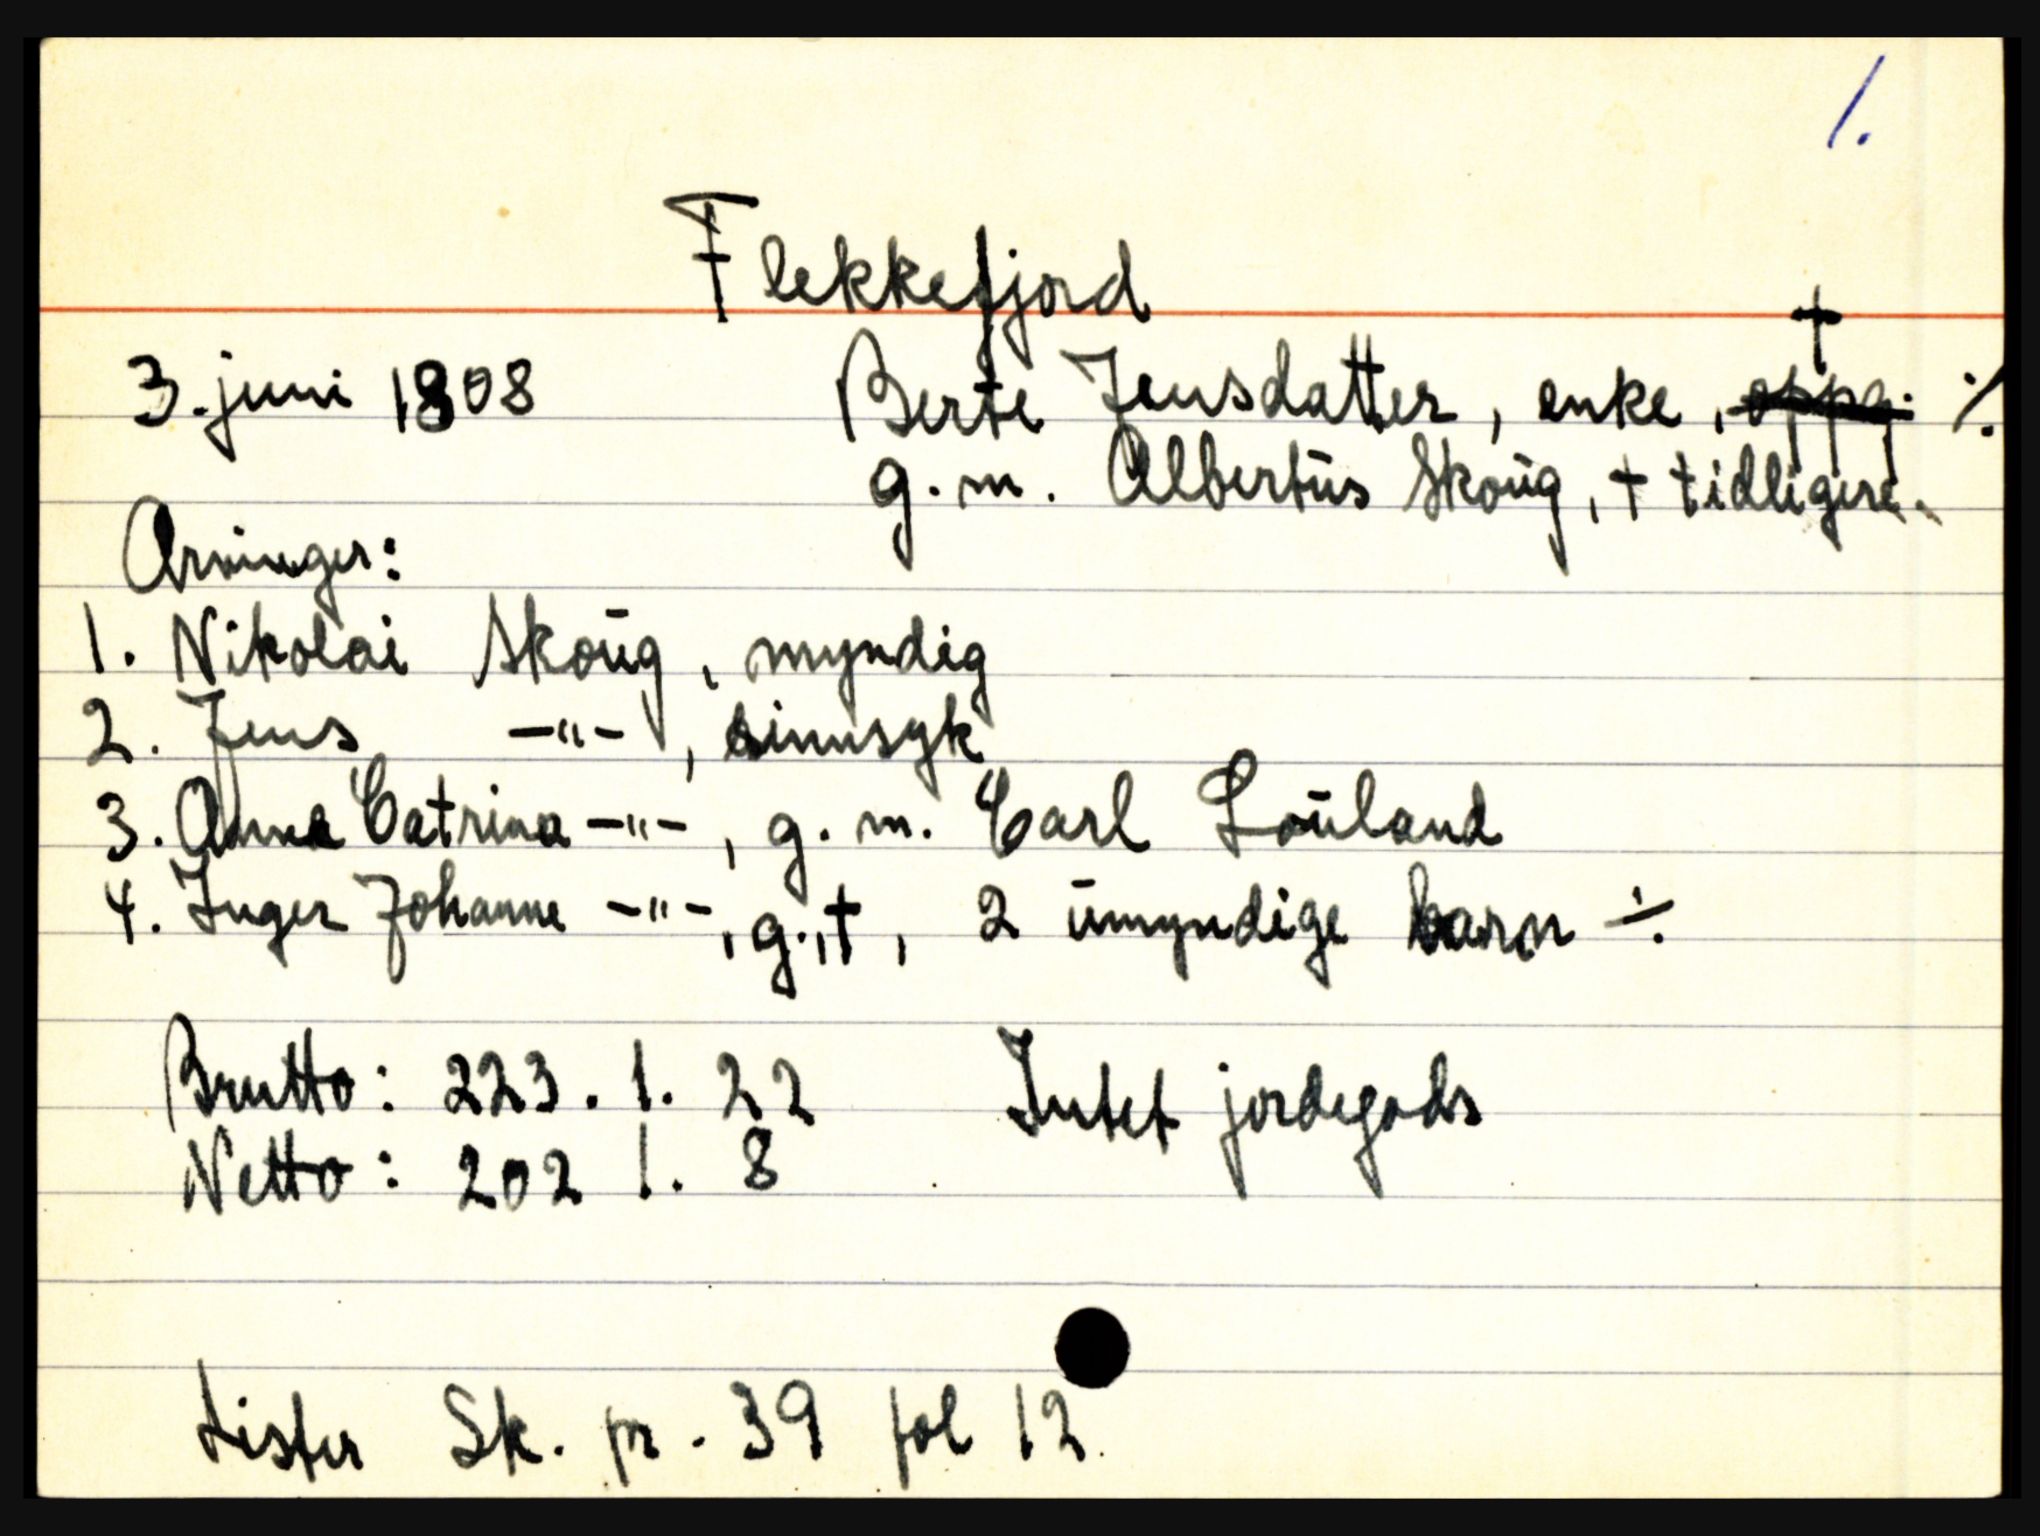 1.
Flekkefjord
3. juni 1808 Berte Jensdatter, enke, oppg. † ./.
g. m. Albertus Skoug, † tidligere.
Arvinger:
1. Nikolai Skoug, myndig
2. Jens -"-, sinnsyk
3. Anna Catrina -"-, g. m. Carl Louland
4. Inger Johanne -"-, g., †, 2 umyndige barn ÷
Brutto: 223. 1. 22 Intet jordegods
Netto: 202 1. 8
Lister Sk. pr. 39 fol 12.